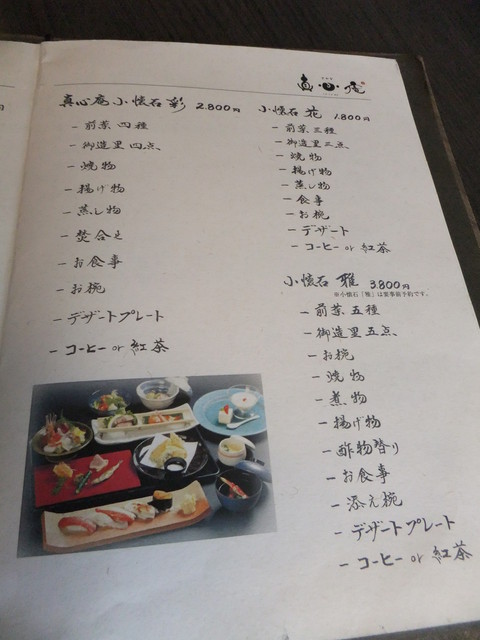 真心庵
真心庵 小懐石 彩 2.800円
- 前菜 四種
- 御造里 四点
- 焼物
- 揚げ物
- 蒸し物
- 焚合せ
- お食事
- お椀
- デザートプレート
- コーヒー or 紅茶
小懐石 花 1.800円
- 前菜 三種
- 御造里 三点
- 焼物
- 揚げ物
- 蒸し物
- 食事
- お椀
- デザート
- コーヒー or 紅茶
小懐石 雅 3.800円
※小懐石「雅」は要事前予約です。
- 前菜 五種
- 御造里 五点
- お椀
- 焼物
- 煮物
- 揚げ物
- 酢物替り
- お食事
- 添え椀
- デザートプレート
- コーヒー or 紅茶